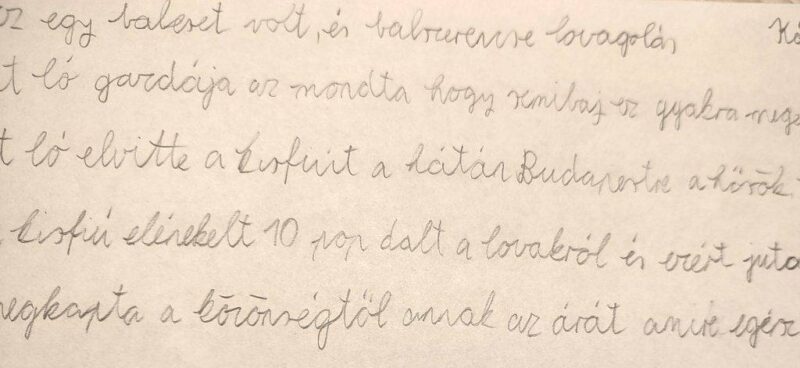 ez egy baleset volt, és balszerencse lovagolás Ká
t ló gazdája az mondta hogy semibaj ez gyakra megs
t ló elvitte a kisfiút a hátán Budapestre a hősök
kisfiú elénekelt 10 pop dalt a lovakról és ezért juta
megkapta a közönségtől annak az árát amire egész